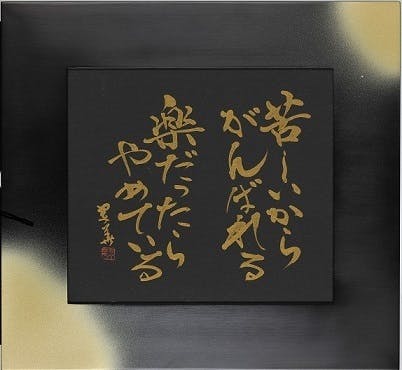 苦しいから
がんばれる
楽だったら
やめている